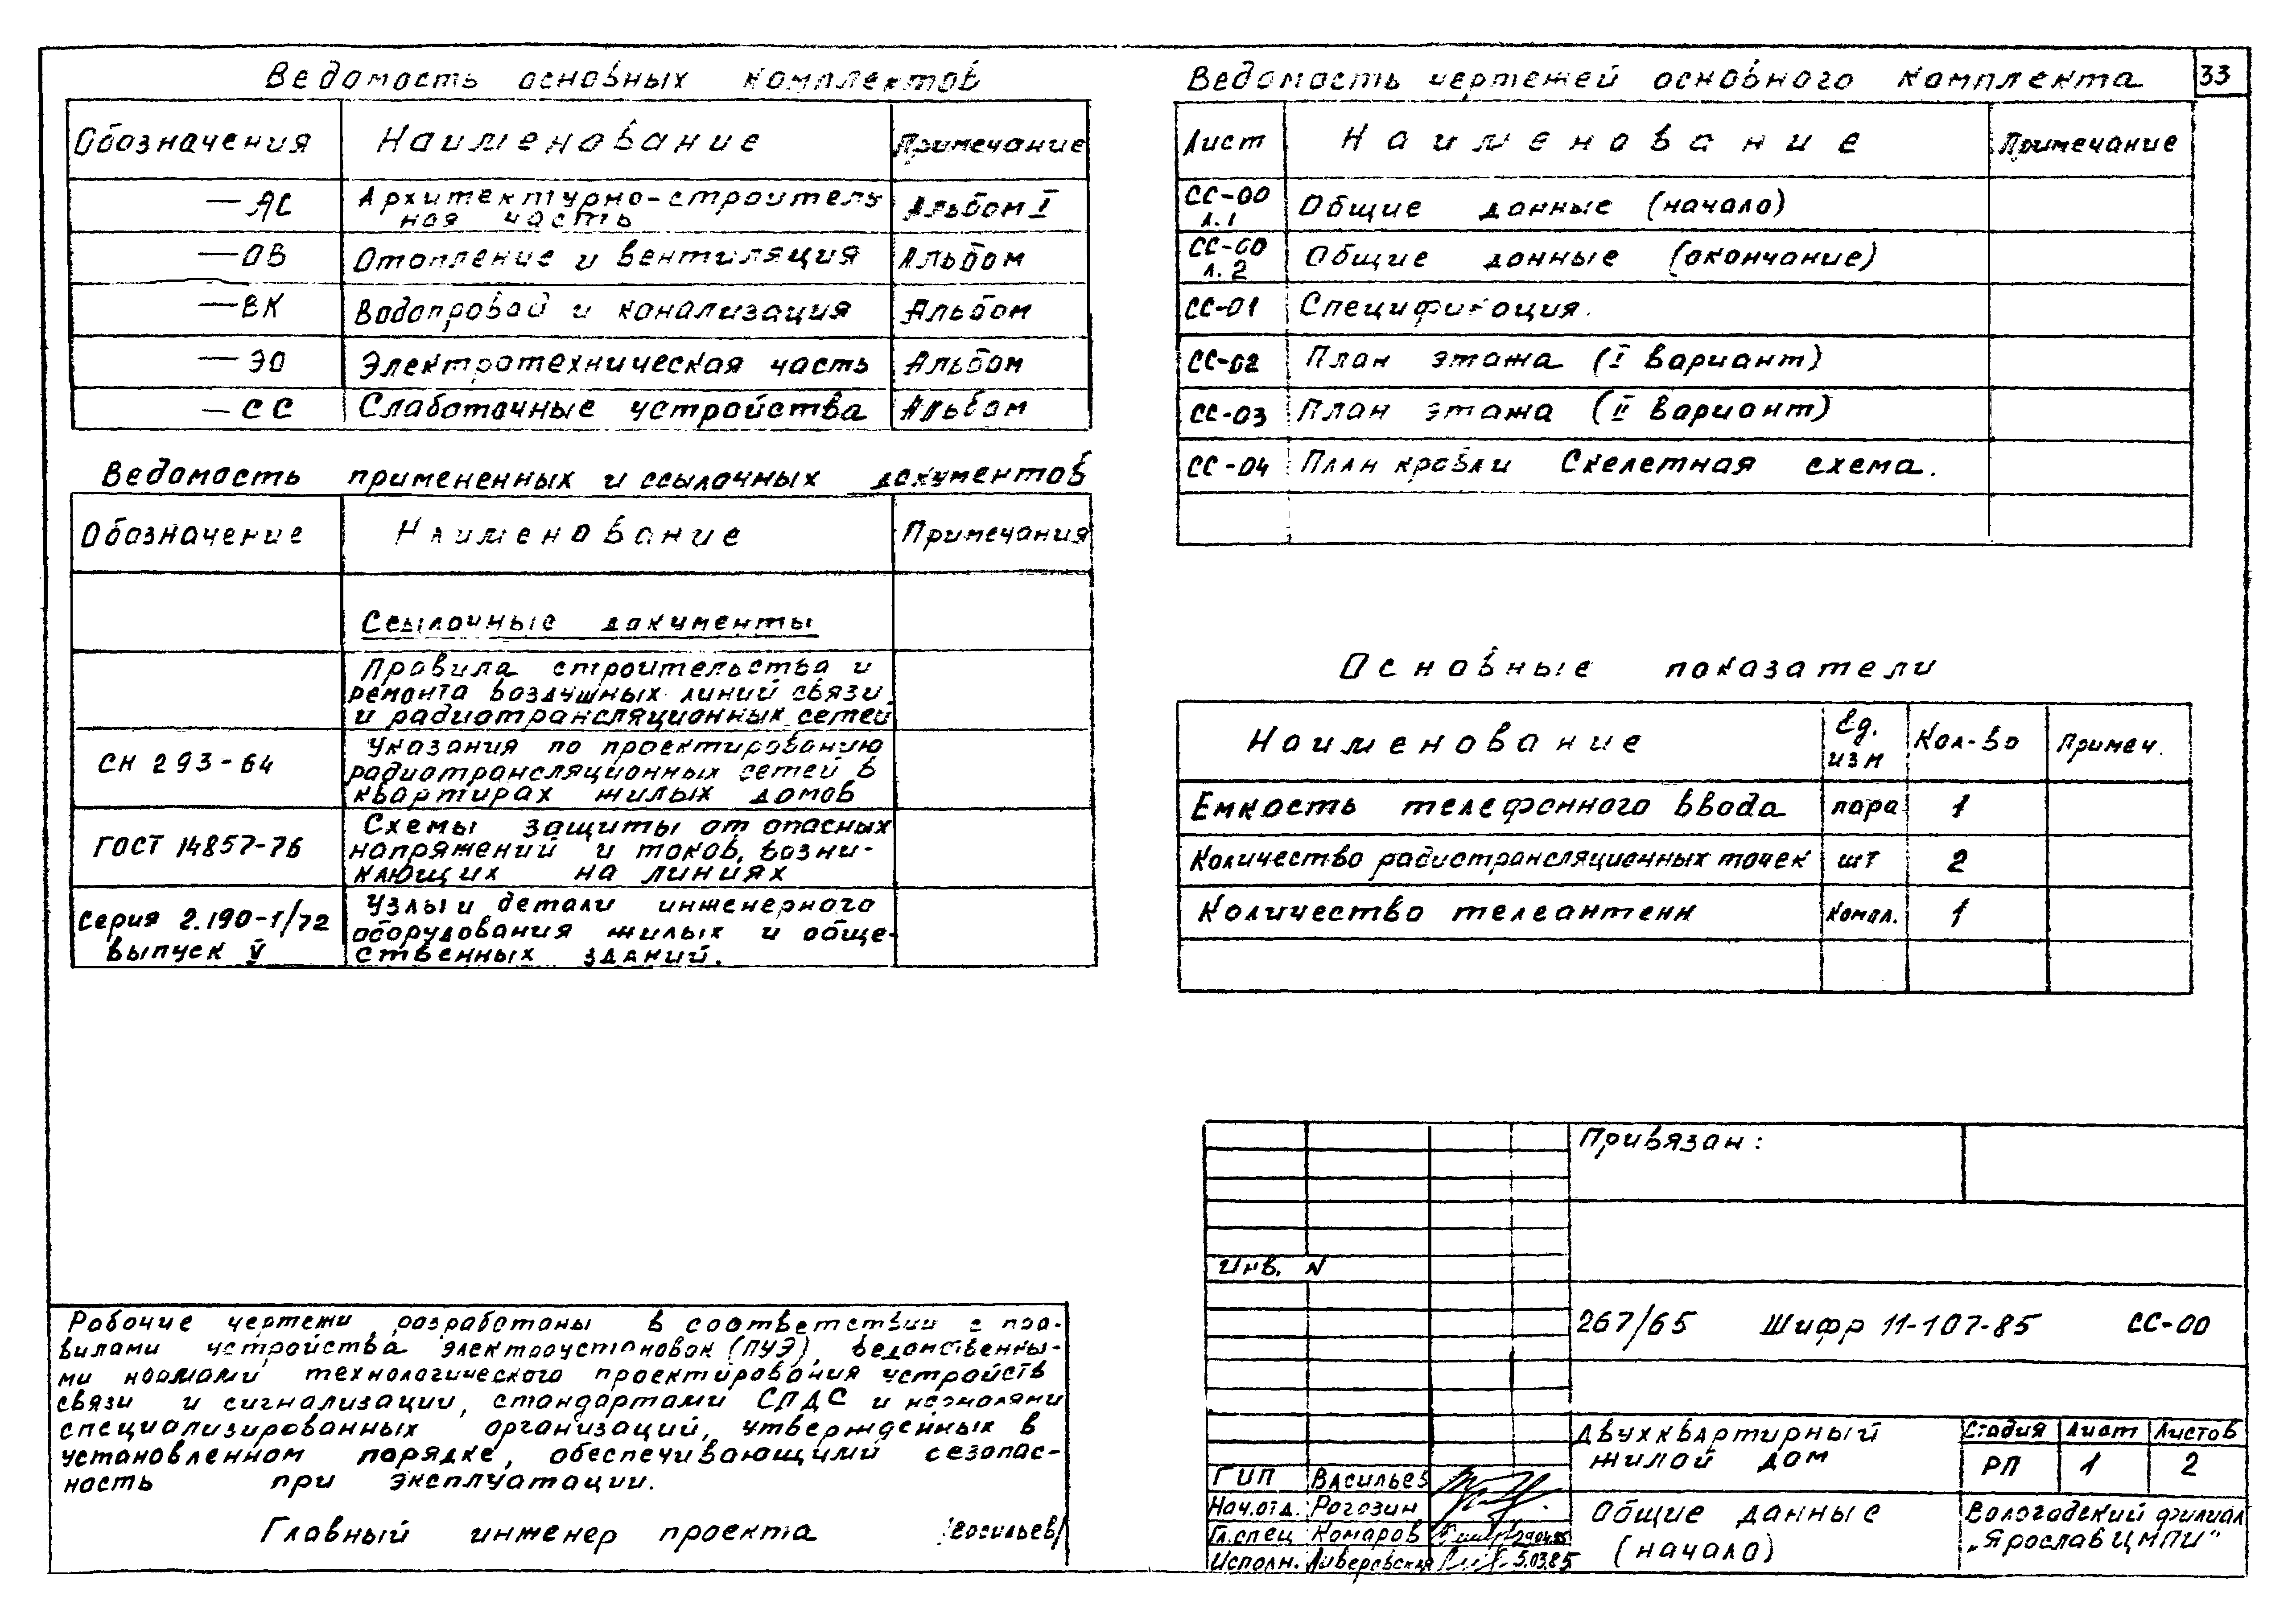 33
Ведомость основных комплектов
Обозначения Наименование Примечание
— АС Архитектурно-строитель
ная часть Альбом I
— ОВ Отопление и вентиляция Альбом
— ВК Водопровод и канализация Альбом
— ЭО Электротехническая часть Альбом
— СС Слаботочные устройства Альбом
Ведомость примененных и ссылочных документов
Обозначение Наименование Примечания
Ссылочные документы
Правила строительства и
ремонта воздушных линий связи
и радиотрансляционных сетей
СН 293-64 Указания по проектированию
радиотрансляционных сетей в
квартирах жилых домов
ГОСТ 14857-76 Схемы защиты от опасных
напряжений и токов, возни-
кающих на линиях
Серия 2.190-1/72
выпуск V
Узлы и детали инженерного
оборудования жилых и обще-
ственных зданий.
Ведомость чертежей основного комплекта
Лист Наименование Примечание
СС-00
л.1 Общие данные (начало)
СС-00
л.2 Общие данные (окончание)
СС-01 Спецификация.
СС-02 План этажа (I вариант)
СС-03 План этажа (II вариант)
СС-04 План кровли Скелетная схема.
Основные показатели
Наименование Ед.
изм Кол-во Примеч.
Емкость телефонного ввода пара 1
Количество радиотрансляционных точек шт 2
Количество телеантенн компл. 1
Рабочие чертежи разработаны в соответствии с пра-
вилами устройства электроустановок (ПУЭ), ведомственны-
ми нормами технологического проектирования устройств
связи и сигнализации, стандартами СПДС и нормалями
специализированных организаций, утвержденных в
установленном порядке, обеспечивающими безопас-
ность при эксплуатации.
Главный инженер проекта /Васильев/
Привязан:
Инв. N
267/65 Шифр 11-107-85 СС-00
Двухквартирный
жилой дом
Стадия Лист Листов
РП 1 2
Общие данные
(начало)
Вологодский филиал
„ЯрославЦМПИ"
ГИП Васильев
Нач.отд. Рогозин
Гл.спец Комаров 29.04.85
Исполн. Ливеровская 5.03.85